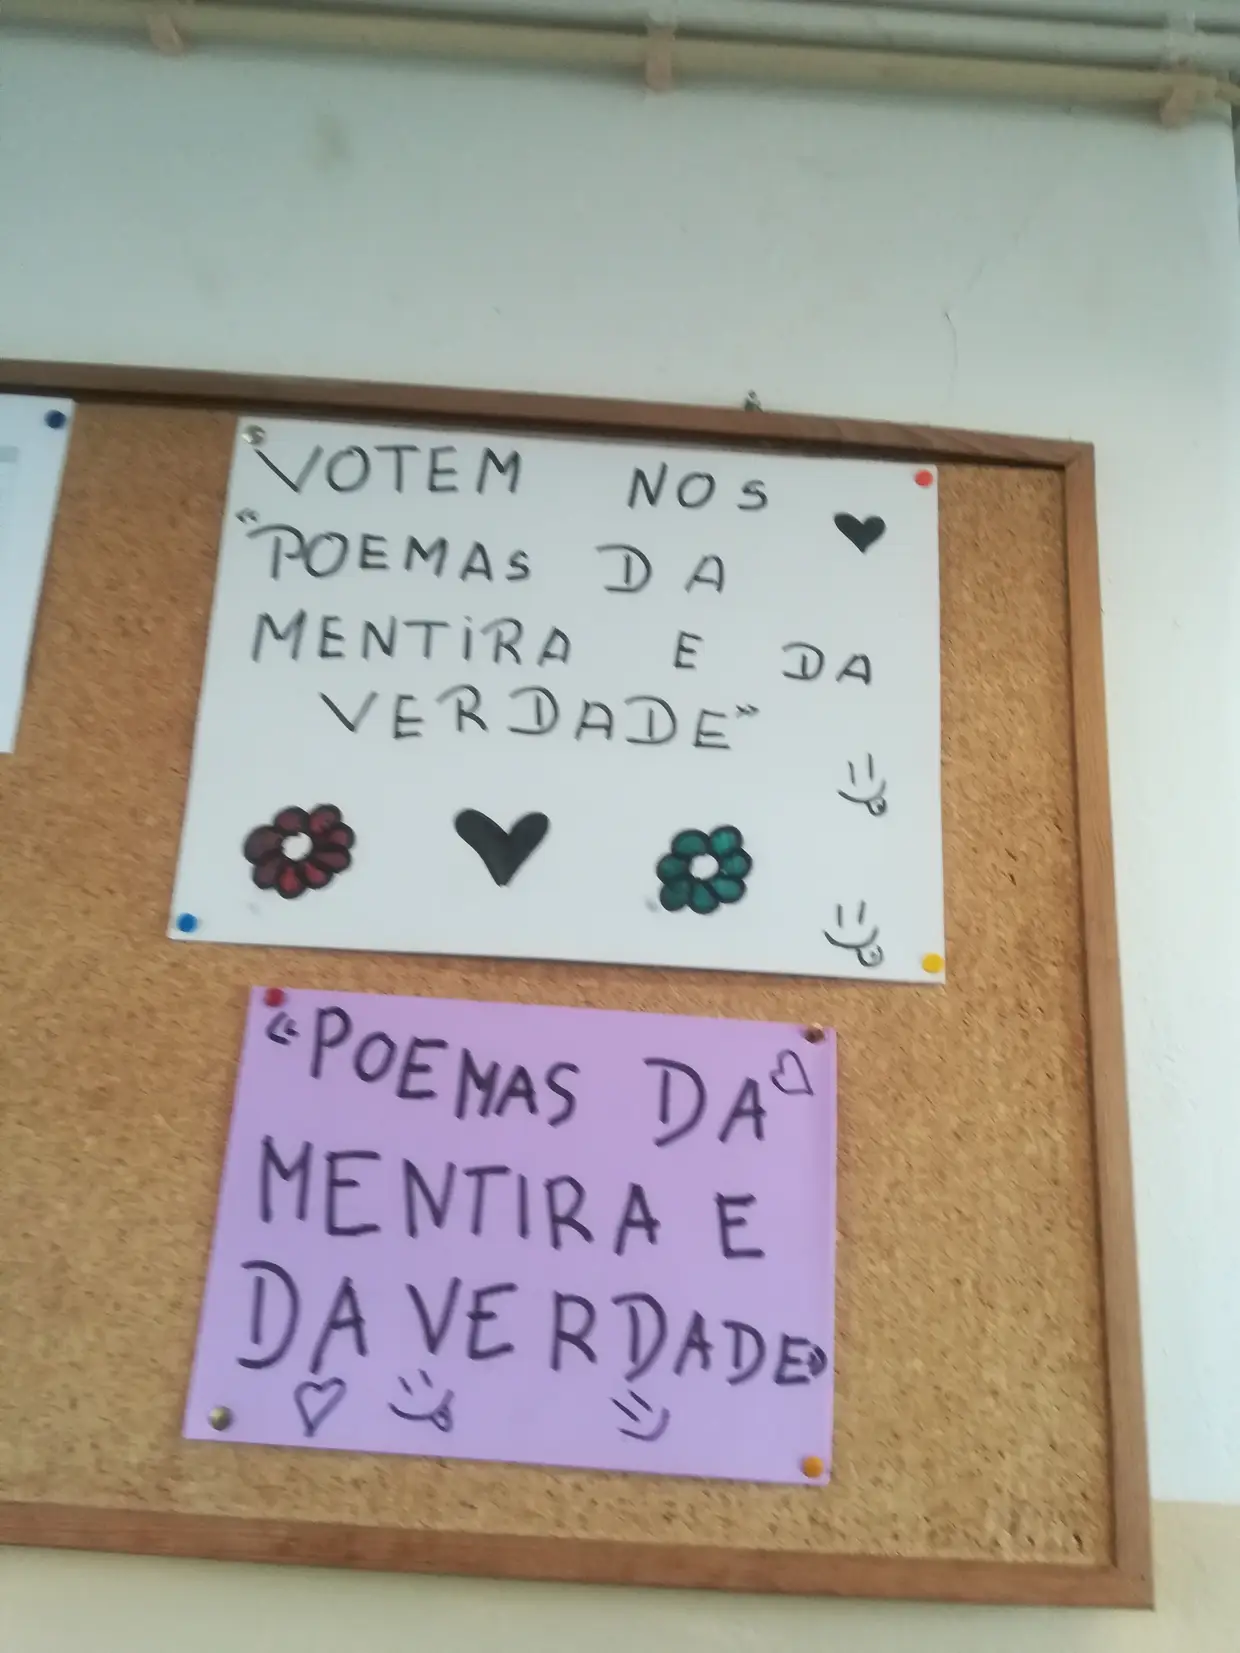 VOTEM NOS
"POEMAS DA
MENTIRA E DA
VERDADE"
"POEMAS DA
MENTIRA E
DA VERDADE"